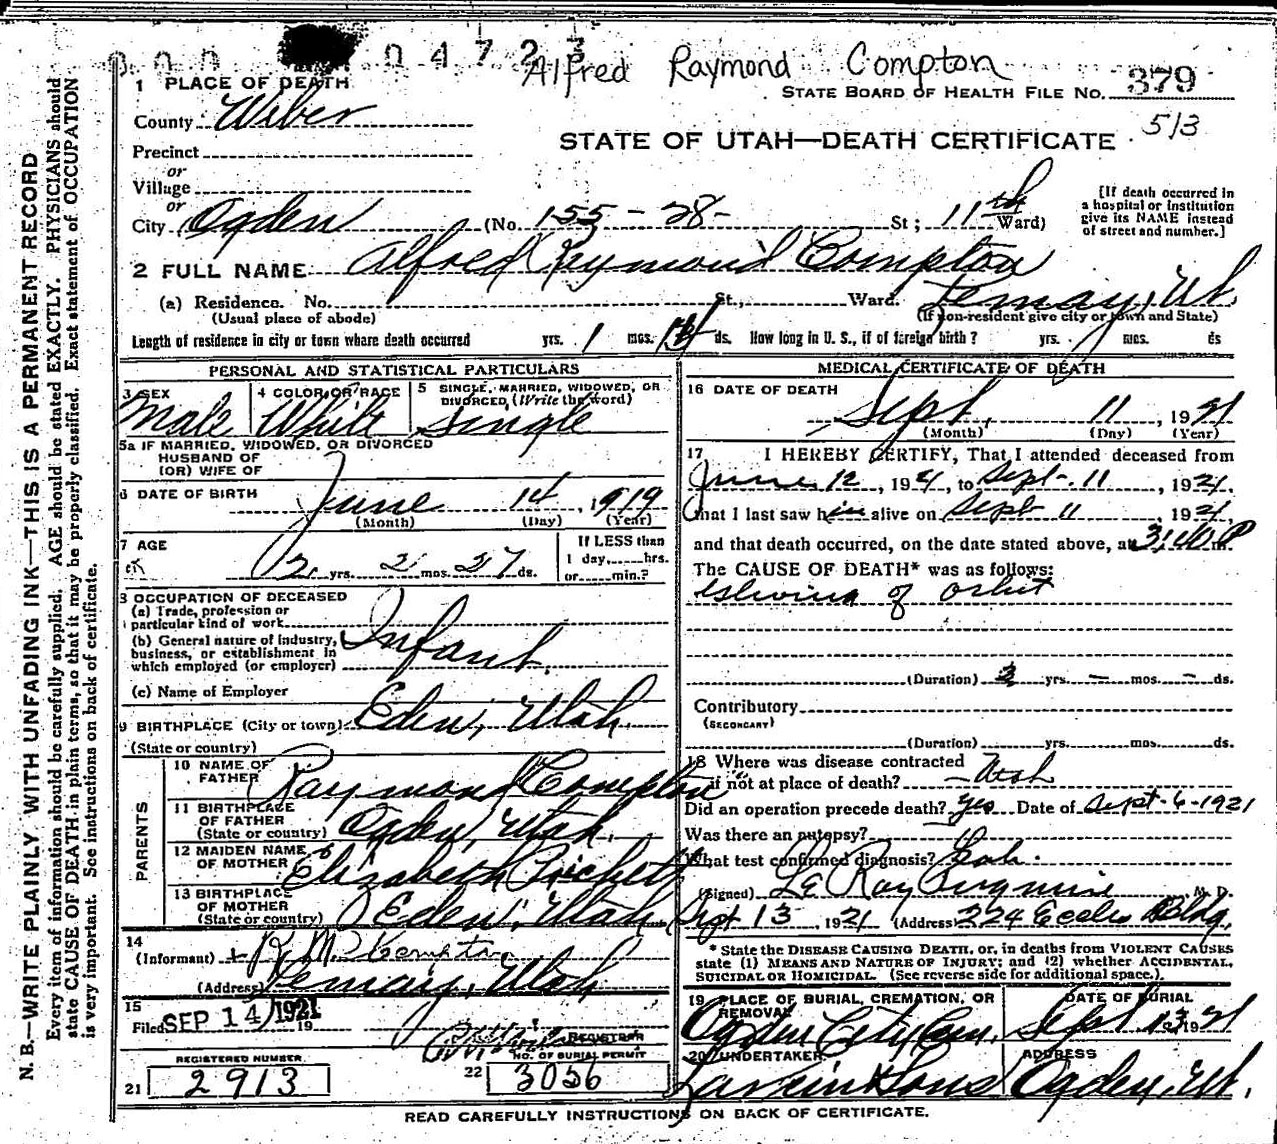 000 04723
Alfred Raymond Compton
STATE BOARD OF HEALTH FILE NO. 379
513
STATE OF UTAH—DEATH CERTIFICATE
1 PLACE OF DEATH
County Weber
Precinct
or
Village
or
City Ogden (No. 155 - 28 - St; 11th Ward)
[If death occurred in
a hospital or institution
give its NAME instead
of street and number.]
2 FULL NAME Alfred Raymond Compton
(a) Residence. No. St., Ward.
(Usual place of abode)
Ut.
(If non-resident give city or town and State)
Length of residence in city or town where death occurred yrs. 1 mos. ds. How long in U. S., if of foreign birth? yrs. mos. ds
PERSONAL AND STATISTICAL PARTICULARS
3 SEX
Male
4 COLOR OR RACE
White
5 SINGLE, MARRIED, WIDOWED, OR
DIVORCED, (Write the word)
Single
5a IF MARRIED, WIDOWED, OR DIVORCED
HUSBAND OF
(OR) WIFE OF
6 DATE OF BIRTH June 14, 1919
(Month) (Day) (Year)
7 AGE
2 yrs. 2 mos. 27 ds.
If LESS than
1 day, hrs.
or min.?
8 OCCUPATION OF DECEASED
(a) Trade, profession or
particular kind of work
(b) General nature of industry,
business, or establishment in
which employed (or employer)
Infant
(c) Name of Employer
9 BIRTHPLACE (City or town) Eden, Utah
(State or country)
PARENTS
10 NAME OF
FATHER Raymond Compton
11 BIRTHPLACE
OF FATHER
(State or country) Ogden, Utah.
12 MAIDEN NAME
OF MOTHER Elizabeth
13 BIRTHPLACE
OF MOTHER
(State or country) Eden, Utah
14
(Informant) R. M. Compton
(Address) Utah
15
Filed SEP 14 1921 19
REGISTRAR
REGISTERED NUMBER
21 2913
NO. OF BURIAL PERMIT
22 3056
MEDICAL CERTIFICATE OF DEATH
16 DATE OF DEATH
Sept, 11, 1921
(Month) (Day) (Year)
17 I HEREBY CERTIFY, That I attended deceased from
June 12, 1921, to Sept. 11, 1921.
that I last saw him alive on Sept 11, 1921,
and that death occurred, on the date stated above, at 3:40 P m.
The CAUSE OF DEATH* was as follows:
of orbit
(Duration) yrs. – mos. – ds.
Contributory
(SECONDARY)
(Duration) yrs. mos. ds.
18 Where was disease contracted
if not at place of death? Utah
Did an operation precede death? yes Date of Sept-6-1921
Was there an autopsy?
What test confirmed diagnosis?
(Signed) Le Roy M. D.
Sept 13, 1921 (Address) 224 Eccles Bldg.
* State the DISEASE CAUSING DEATH, or, in deaths from VIOLENT CAUSES
state (1) MEANS AND NATURE OF INJURY; and (2) whether ACCIDENTAL,
SUICIDAL OR HOMICIDAL. (See reverse side for additional space.)
19 PLACE OF BURIAL, CREMATION, OR
REMOVAL
Ogden City Cem.
DATE OF BURIAL
Sept 13 1921
20 UNDERTAKER
Larkin & Sons
ADDRESS
Ogden, Ut.
READ CAREFULLY INSTRUCTIONS ON BACK OF CERTIFICATE.
N. B.—WRITE PLAINLY WITH UNFADING INK—THIS IS A PERMANENT RECORD
Every item of information should be carefully supplied. AGE should be stated EXACTLY. PHYSICIANS should
state CAUSE OF DEATH in plain terms, so that it may be properly classified. Exact statement of OCCUPATION
is very important. See instructions on back of certificate.